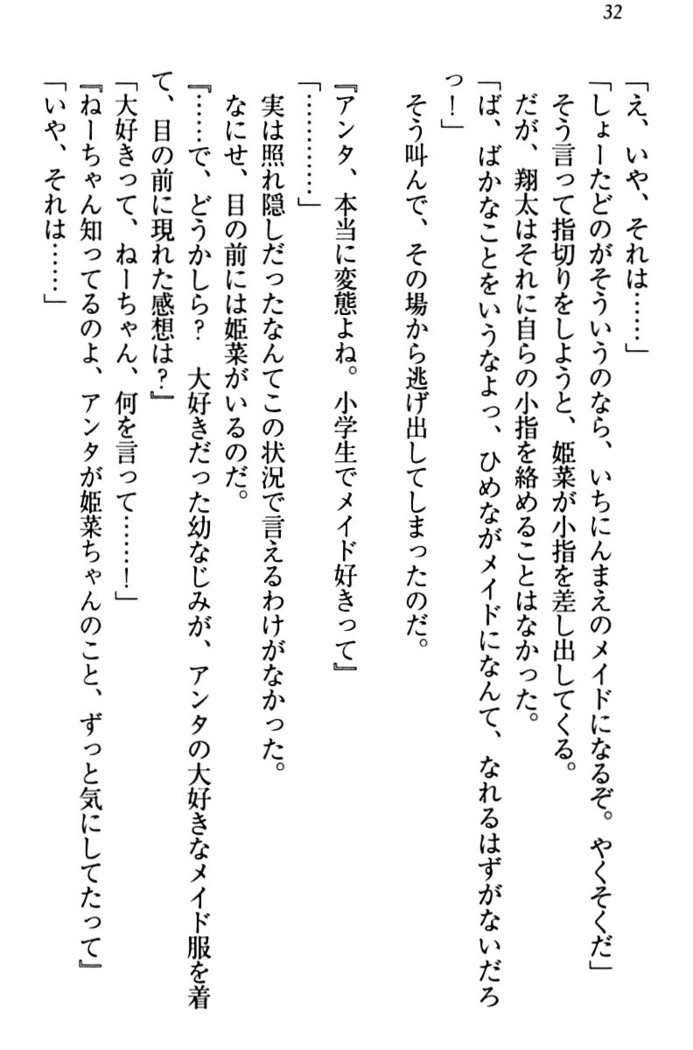 32
「え、いや、それは……」
「しょーたどのがそういうのなら、いちにんまえのメイドになるぞ。やくそくだ」
そう言って指切りをしようと、姫菜が小指を差し出してくる。
だが、翔太はそれに自らの小指を絡めることはなかった。
「ば、ばかなことをいうなよっ、ひめながメイドになんて、なれるはずがないだろ
っ！」
そう叫んで、その場から逃げ出してしまったのだ。
『アンタ、本当に変態よね。小学生でメイド好きって』
「…………」
実は照れ隠しだったなんてこの状況で言えるわけがなかった。
なにせ、目の前には姫菜がいるのだ。
『……で、どうかしら？　大好きだった幼なじみが、アンタの大好きなメイド服を着
て、目の前に現れた感想は？』
「大好きって、ねーちゃん、何を言って……！」
『ねーちゃん知ってるのよ、アンタが姫菜ちゃんのこと、ずっと気にしてたって』
「いや、それは……」